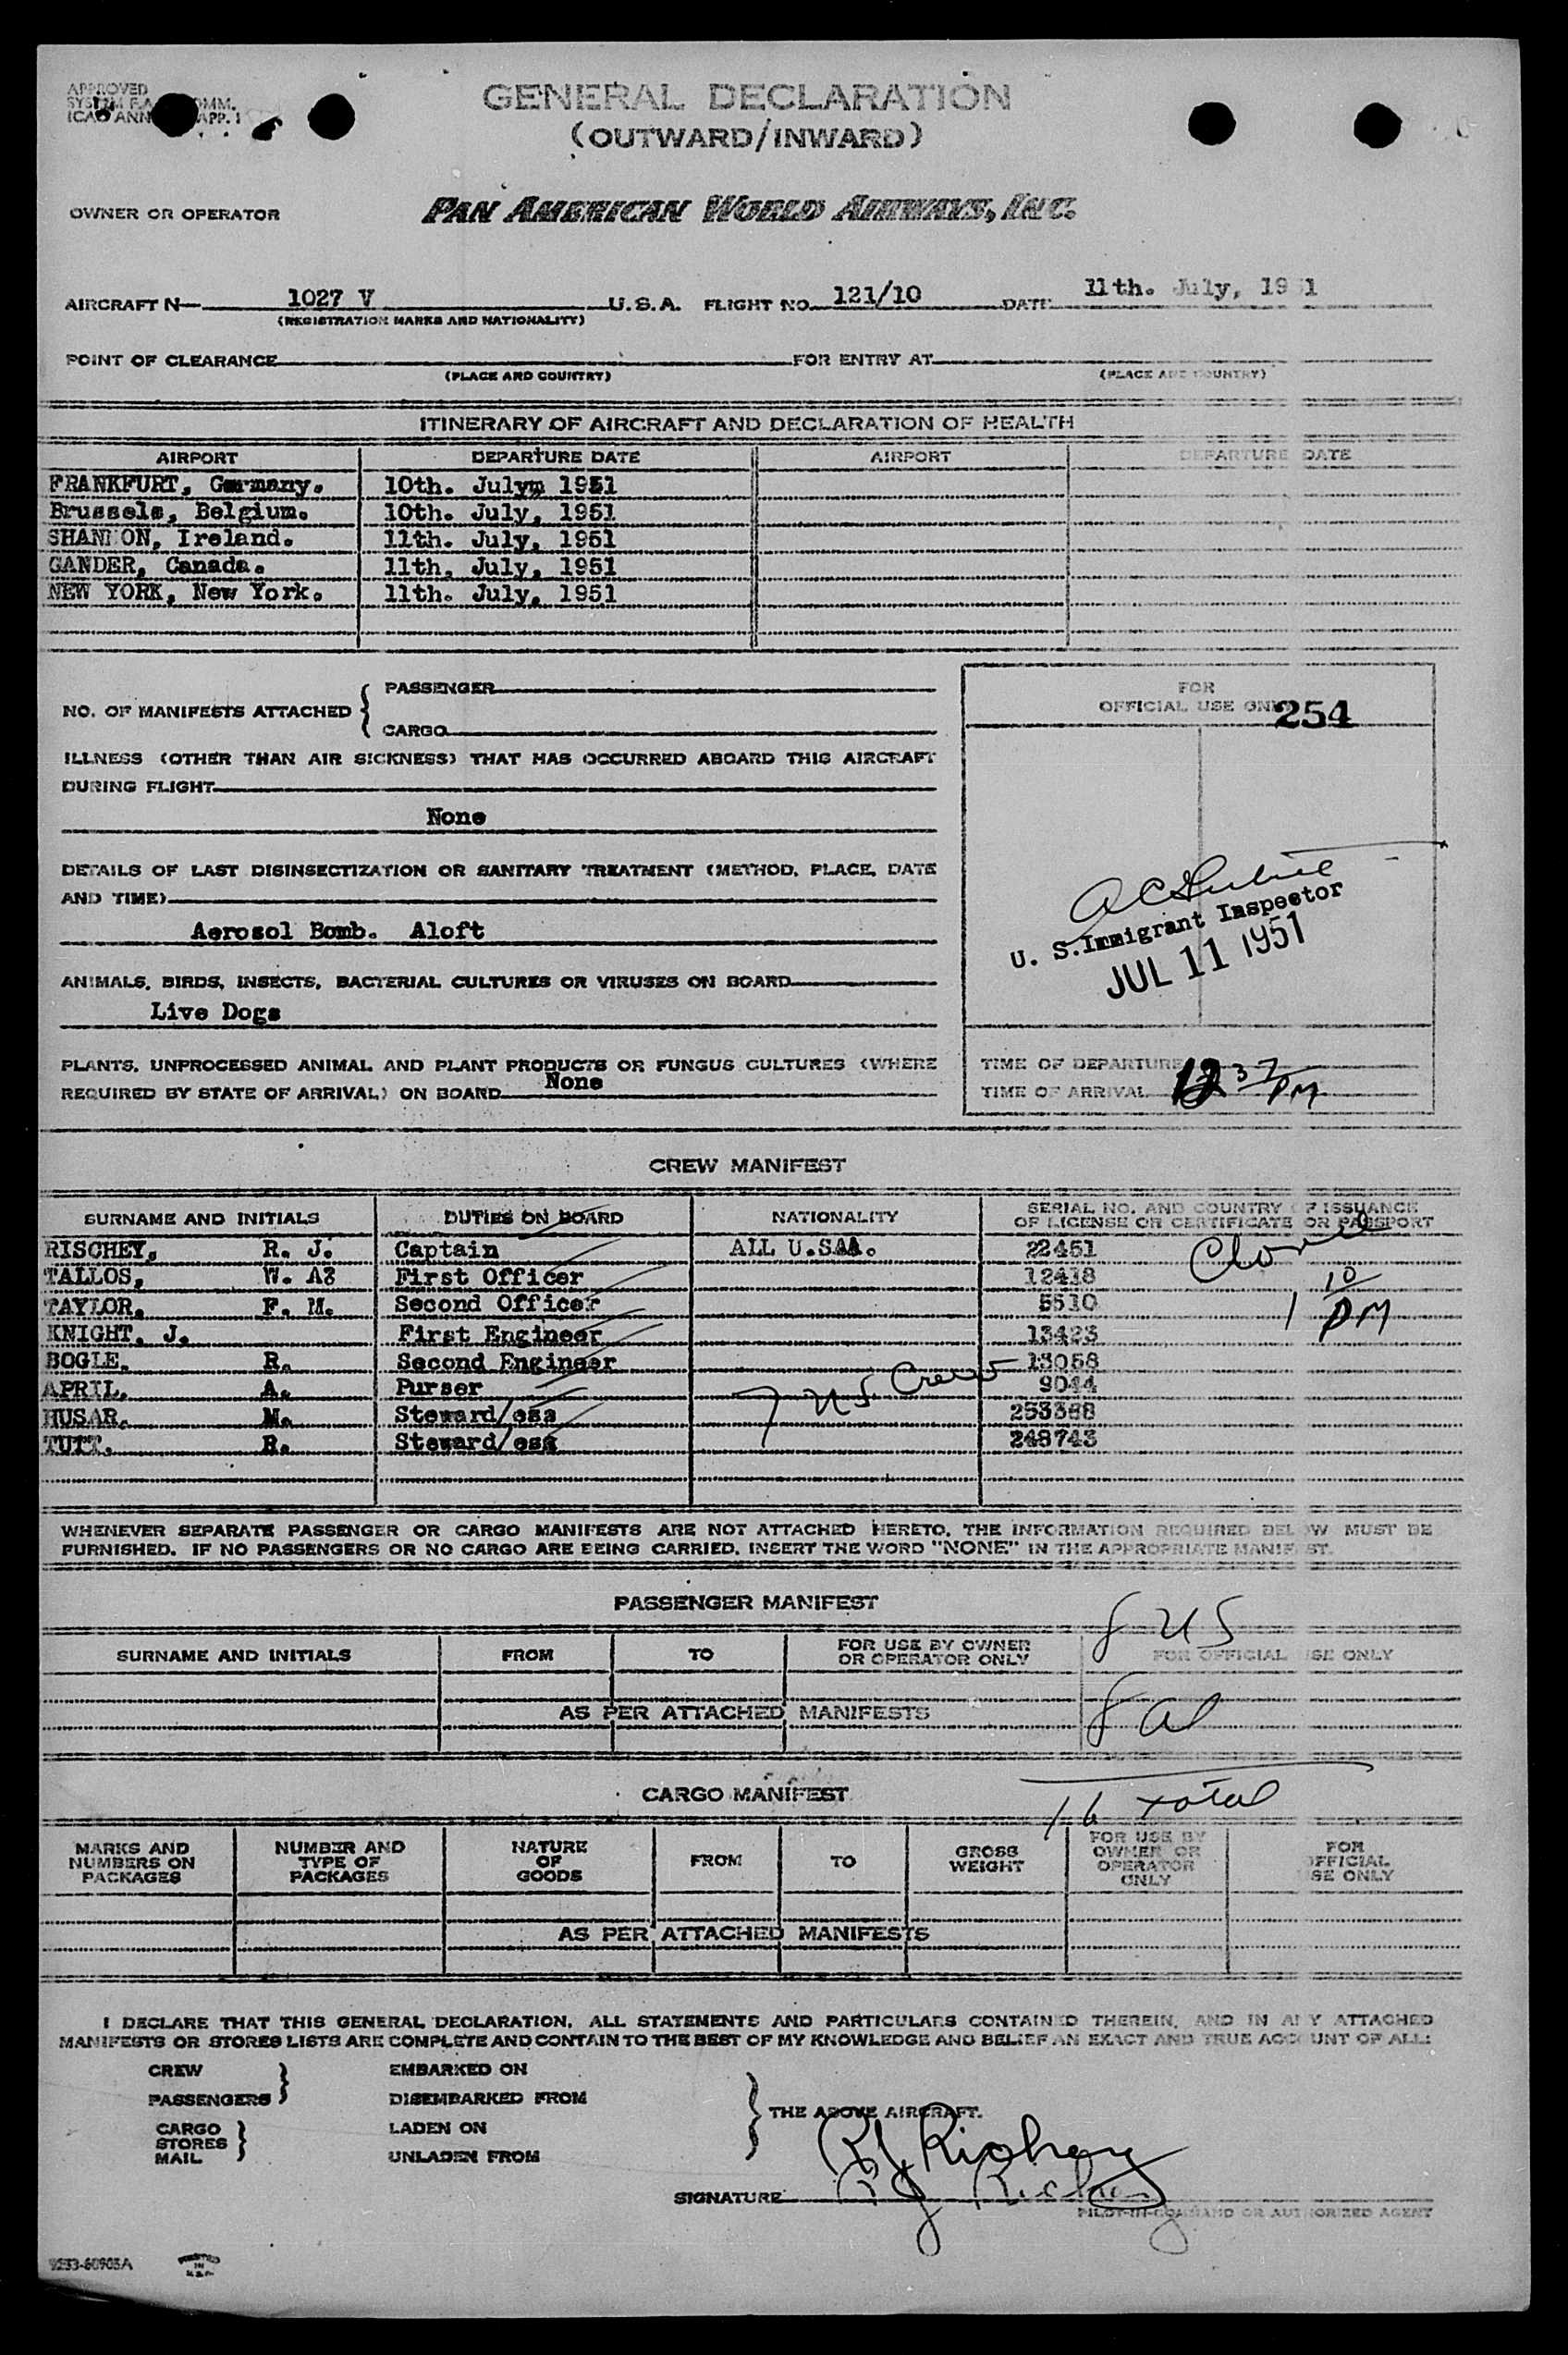 APPROVED
GENERAL DECLARATION
(OUTWARD/INWARD)
OWNER OR OPERATOR PAN AMERICAN WORLD AIRWAYS, INC.
AIRCRAFT N— 1027 V U.S.A. FLIGHT NO. 121/10 DATE 11th. July, 1951
(REGISTRATION MARKS AND NATIONALITY)
POINT OF CLEARANCE FOR ENTRY AT
(PLACE AND COUNTRY) (PLACE AND COUNTRY)
ITINERARY OF AIRCRAFT AND DECLARATION OF HEALTH
AIRPORT DEPARTURE DATE AIRPORT DEPARTURE DATE
FRANKFURT, Germany. 10th. Julym 1951
Brussels, Belgium. 10th. July, 1951
SHANNON, Ireland. 11th. July, 1951
GANDER, Canada. 11th, July, 1951
NEW YORK, New York. 11th. July, 1951
NO. OF MANIFESTS ATTACHED { PASSENGER
CARGO
FOR
OFFICIAL USE ONLY 254
ILLNESS (OTHER THAN AIR SICKNESS) THAT HAS OCCURRED ABOARD THIS AIRCRAFT
DURING FLIGHT
None
DETAILS OF LAST DISINSECTIZATION OR SANITARY TREATMENT (METHOD, PLACE, DATE
AND TIME)
Aerosol Bomb. Aloft
U. S. Immigrant Inspector
JUL 11 1951
ANIMALS, BIRDS, INSECTS, BACTERIAL CULTURES OR VIRUSES ON BOARD
Live Dogs
PLANTS, UNPROCESSED ANIMAL AND PLANT PRODUCTS OR FUNGUS CULTURES (WHERE
REQUIRED BY STATE OF ARRIVAL) ON BOARD None
TIME OF DEPARTURE
TIME OF ARRIVAL 12 37 PM
CREW MANIFEST
SURNAME AND INITIALS DUTIES ON BOARD NATIONALITY SERIAL NO. AND COUNTRY OF ISSUANCE
OF LICENSE OR CERTIFICATE OR PASSPORT
RISCHEY, R. J. Captain ALL U.SAA. 22451
TALLOS, W. A? First Officer 12418
TAYLOR. F. M. Second Officer 5510 1 10 PM
KNIGHT. J. First Engineer 13423
BOGLE. R. Second Engineer 13058
APRIL. A. Purser 7 US Crew 9044
HUSAR. M. Steward/ess 253368
TUTT. R. Steward/ess 248743
WHENEVER SEPARATE PASSENGER OR CARGO MANIFESTS ARE NOT ATTACHED HERETO, THE INFORMATION REQUIRED BELOW MUST BE
FURNISHED. IF NO PASSENGERS OR NO CARGO ARE BEING CARRIED, INSERT THE WORD "NONE" IN THE APPROPRIATE MANIFEST.
PASSENGER MANIFEST
8 US
SURNAME AND INITIALS FROM TO FOR USE BY OWNER
OR OPERATOR ONLY FOR OFFICIAL USE ONLY
AS PER ATTACHED MANIFESTS 8 al
CARGO MANIFEST
16 total
MARKS AND
NUMBERS ON
PACKAGES
NUMBER AND
TYPE OF
PACKAGES
NATURE
OF
GOODS
FROM
TO
GROSS
WEIGHT
FOR USE BY
OWNER OR
OPERATOR
ONLY
FOR
OFFICIAL
USE ONLY
AS PER ATTACHED MANIFESTS
I DECLARE THAT THIS GENERAL DECLARATION, ALL STATEMENTS AND PARTICULARS CONTAINED THEREIN, AND IN ANY ATTACHED
MANIFESTS OR STORES LISTS ARE COMPLETE AND CONTAIN TO THE BEST OF MY KNOWLEDGE AND BELIEF AN EXACT AND TRUE ACCOUNT OF ALL:
CREW EMBARKED ON
PASSENGERS DISEMBARKED FROM
THE ABOVE AIRCRAFT.
CARGO LADEN ON
STORES
MAIL UNLADEN FROM
RJ Rischey
SIGNATURE RJ Rischey
PILOT-IN-COMMAND OR AUTHORIZED AGENT
9233-60905A PRINTED
IN
U.S.A.